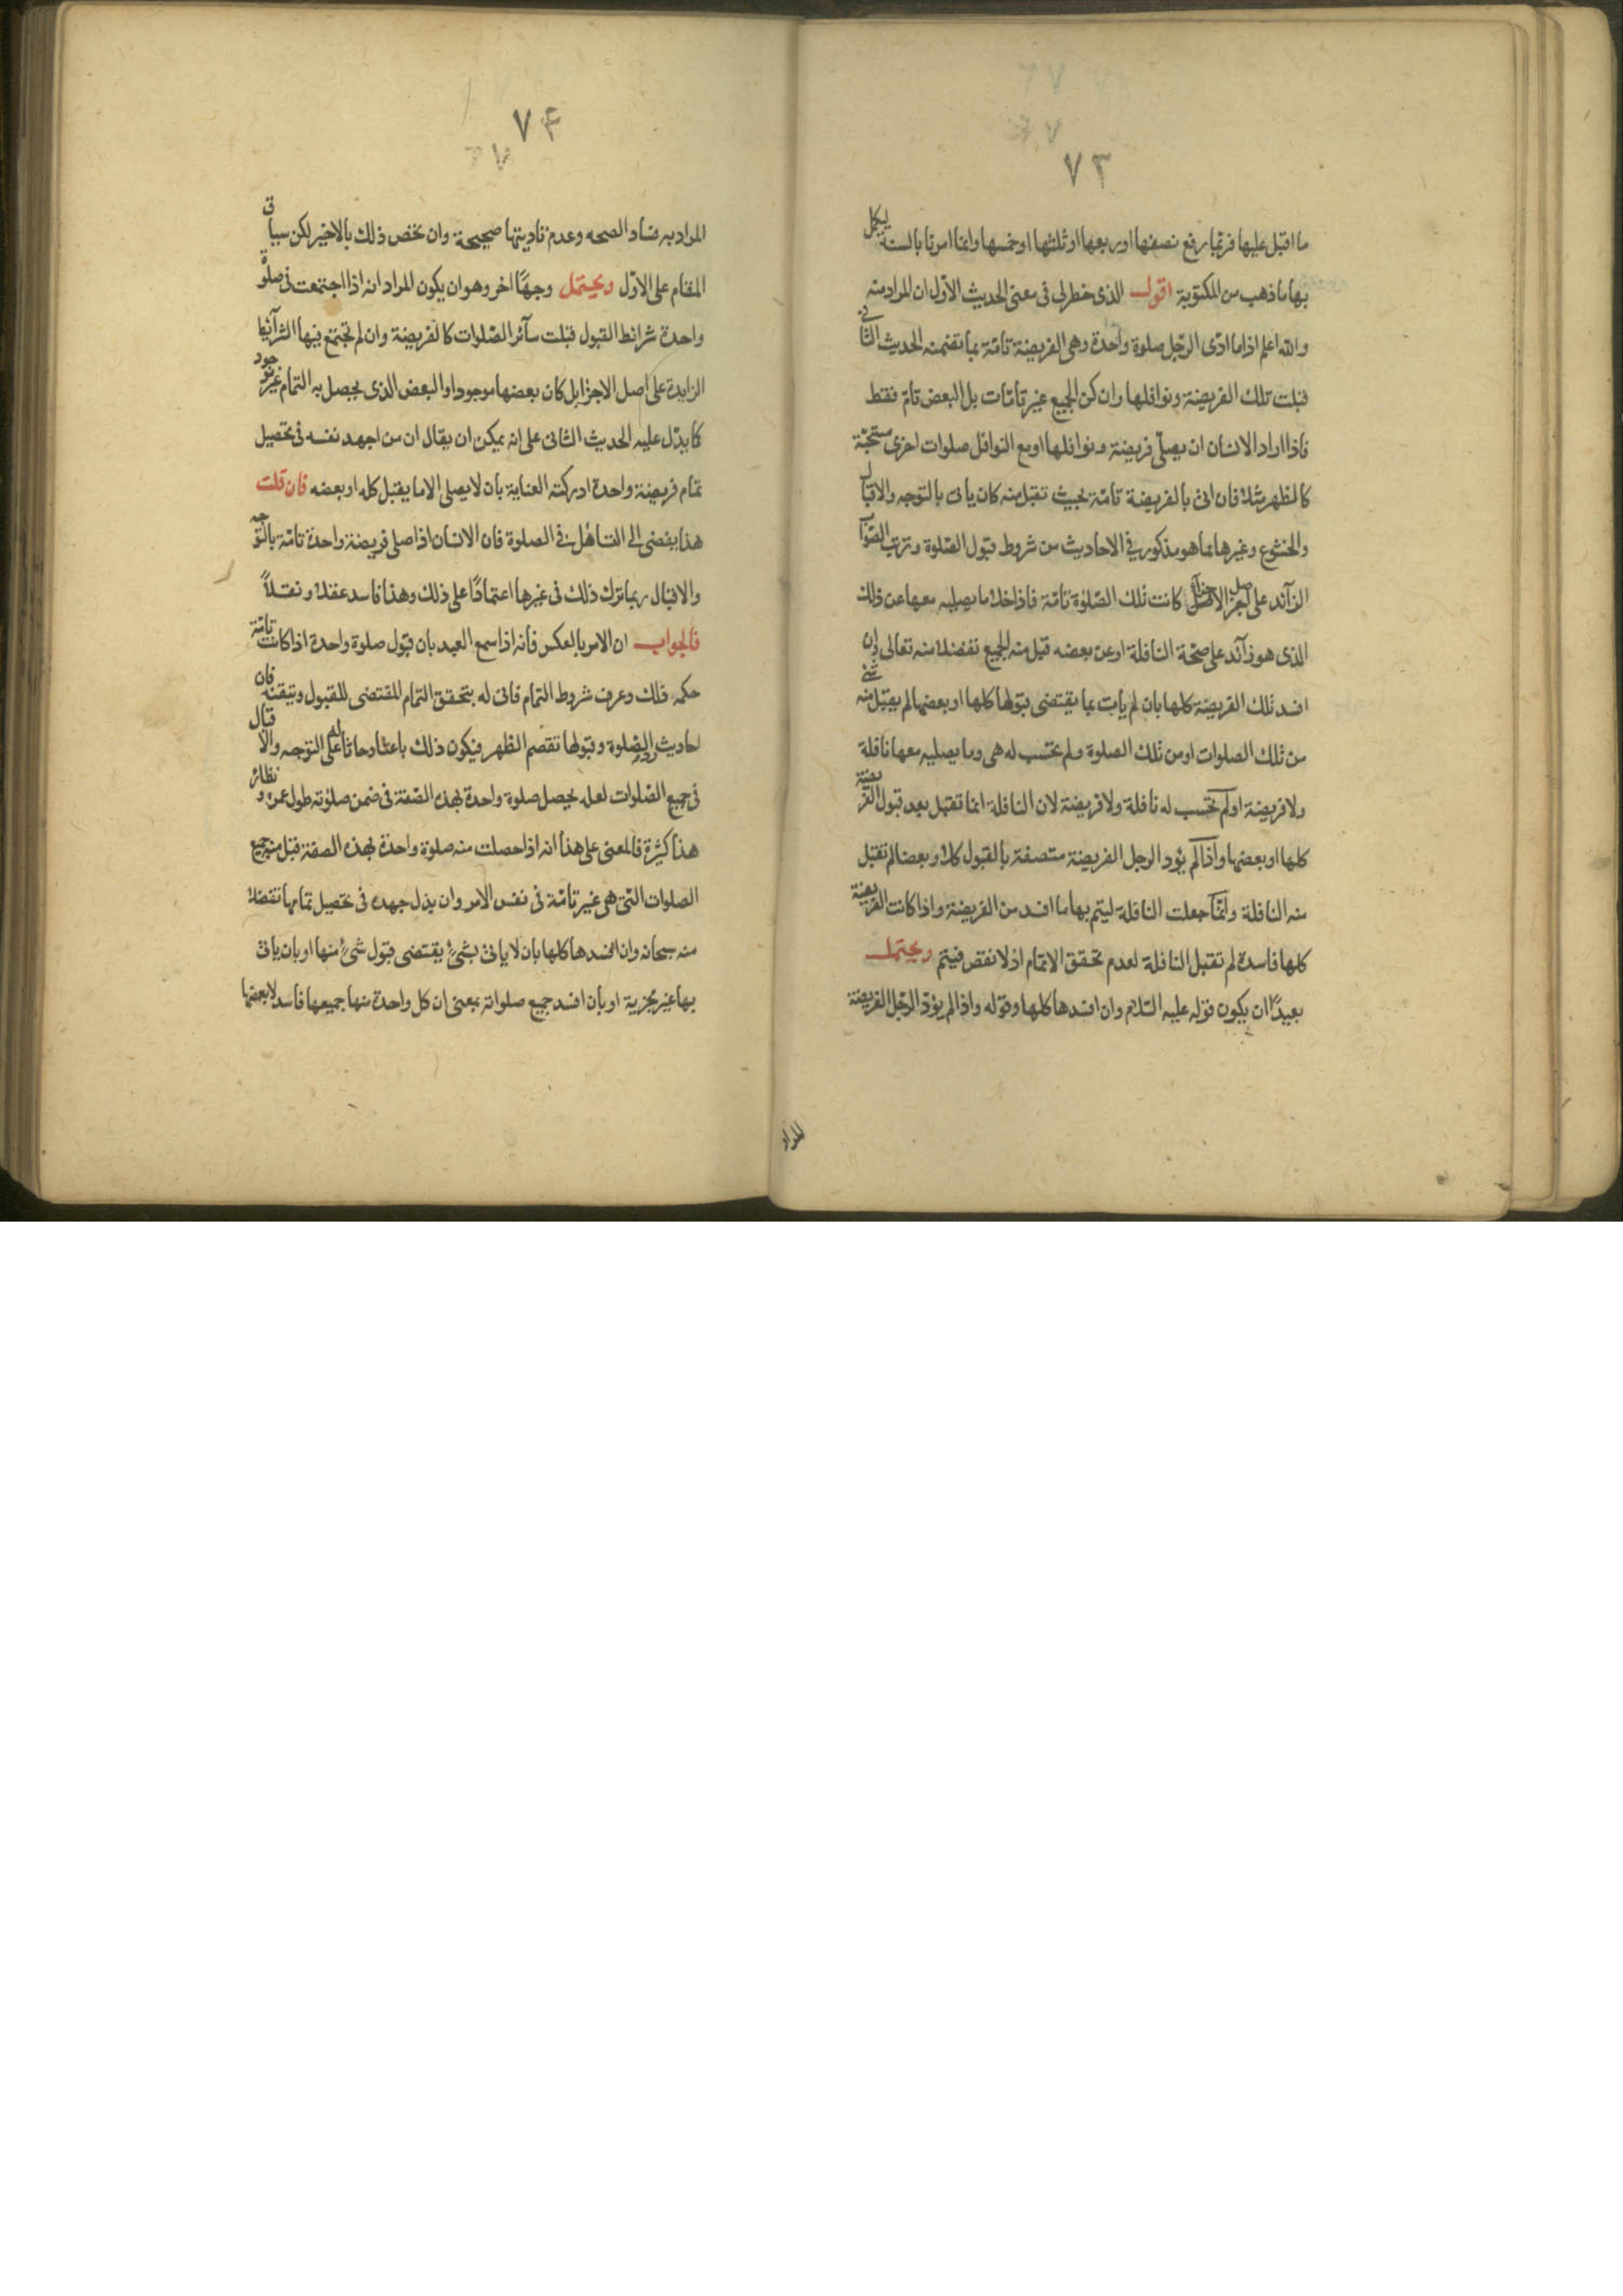 ٧٣
ما اقبل عليها فربما رفع نصفها او ربعها او ثلثها او خمسها وانما امرنا بالسنة ليكمل
بها ما ذهب من المكتوبة اقول الذى خطر لى فى معنى الحديث الاول ان المراد منه
والله اعلم اذا ما ادّى الرّجل صلوة واحدة وهى الفريضة تامّة بما تضمنه الحديث الثانى
قبلت تلك الفريضة ونوافلها وان كن الجميع غير تامّات بل البعض تامّ فقط
فاذا اراد الانسان ان يصلّى فريضة ونوافلها او مع النوافل صلوات اخرى مستحبّة
كالظهر مثلا فان اتى بالفريضة تامّة بحيث تقبل منه كان ياتى بالتوجه والاقبال
والخشوع وغيرها مما هو مذكور فى الاحاديث من شروط قبول الصّلوة وترتب الثواب
الزآئد على اصل الاجزآء كانت تلك الصّلوة تامّة فاذا خلا ما يصليه معها عن ذلك
الذى هو زآئد على صحّة النافلة او عن بعضه قبل منه الجميع تفضلا منه تعالى وان
افسد تلك الفريضة كلها بان لم يات بما يقتضى قبولها كلها او بعضها لم يقبل منه شئ
من تلك الصلوات او من تلك الصلوة ولم تحتسب له هى وما يصليه معها نافلة
ولا فريضة او لم تحتسب له نافلة ولا فريضة لان النافلة انما تقبل بعد قبول الفريضة
كلها او بعضها واذا لم يؤد الرجل الفريضة متصفة بالقبول كلا وبعضا لم تقبل
منه النافلة وانّما جعلت النافلة ليتم بها ما افسد من الفريضة واذا كانت الفريضة
كلها فاسدة لم تقبل النافلة لعدم تحقق الاتمام اذ لا نقص فيتم ويحتمل
بعيدًا ان يكون قوله عليه السّلام وان افسدها كلها وقوله واذا لم يؤدّ الرّجل الفريضة
المراد
٧۴
المراد به فساد الصحه وعدم تاديتها صحيحة وان تخص ذلك بالاخير لكن سياق
المقام على الاوّل ويحتمل وجهًا اخر وهو ان يكون المراد انه اذا اجتمعت فى صلوة
واحدة شرائط القبول قبلت سآئر الصّلوات كالفريضة وان لم تجتمع فيها الشرآئط
الزايدة على اصل الاجزا بل كان بعضها موجودا والبعض الذى يحصل به التمام غير موجود
كما يدّل عليه الحديث الثانى على انه يمكن ان يقال ان من اجهد نفسه فى تحصيل
تمام فريضة واحدة ادركته العناية بان لا يصلى الا ما يقبل كله او بعضه فان قلت
هذا يفضى الى التساهل فى الصلوة فان الانسان اذا صلى فريضة واحدة تامّة بالتوجه
والاقبال ربما ترك ذلك فى غيرها اعتمادًا على ذلك وهذا فاسد عقلا ونقلاً
فالجواب ان الامر بالعكس فانه اذا سمع العبد بان قبول صلوة واحدة اذا كانت تامّة
حكمه ذلك وعرف شروط التمام فانى له بتحقق التمام المقتضى للقبول وتيقنه فان
احاديث رد الصلوة وقبولها تقصم الظهر فيكون ذلك باعثا وحاثا له على التوجه والاقبال
فى جميع الصّلوات لعله يحصل صلوة واحدة بهذه الصّفة فى ضمن صلوته طول عمره ونظائر
هذا كثيرة فالمعنى على هذا انه اذا حصلت منه صلوة واحدة بهذه الصفة قبل منه جميع
الصلوات التى هى غير تامّة فى نفس الامر وان بذل جهده فى تحصيل تمامها تفضلا
منه سبحانه وان افسدها كلها بان لا ياتى بشئٍ يقتضى قبول شئٍ منها او بان ياتى
بها غير مجزية او بان افسد جميع صلواته بمعنى ان كل واحدة منها جميعها فاسد لا بعضها